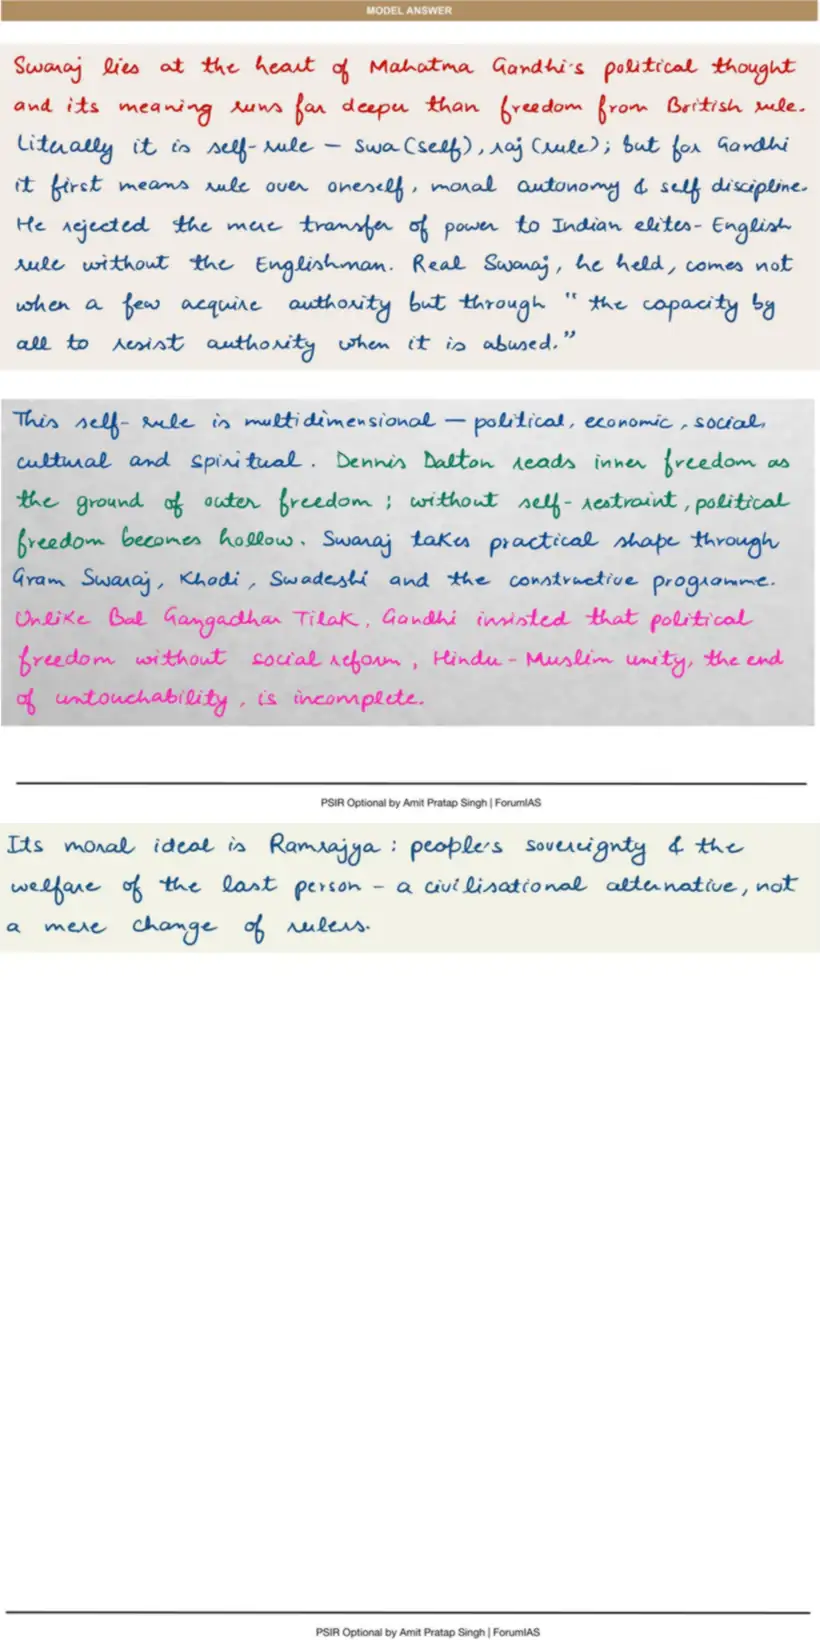 MODEL ANSWER
Swaraj lies at the heart of Mahatma Gandhi's political thought
and its meaning runs far deeper than freedom from British rule.
Literally it is self-rule – swa (self), raj (rule); but for Gandhi
it first means rule over oneself, moral autonomy & self discipline.
He rejected the mere transfer of power to Indian elites - English
rule without the Englishman. Real Swaraj, he held, comes not
when a few acquire authority but through "the capacity by
all to resist authority when it is abused."
This self-rule is multidimensional – political, economic, social,
cultural and spiritual. Dennis Dalton reads inner freedom as
the ground of outer freedom; without self-restraint, political
freedom becomes hollow. Swaraj takes practical shape through
Gram Swaraj, Khadi, Swadeshi and the constructive programme.
Unlike Bal Gangadhar Tilak, Gandhi insisted that political
freedom without social reform, Hindu-Muslim unity, the end
of untouchability, is incomplete.
PSIR Optional by Amit Pratap Singh | ForumIAS
Its moral ideal is Ramrajya: people's sovereignty & the
welfare of the last person – a civilisational alternative, not
a mere change of rulers.
PSIR Optional by Amit Pratap Singh | ForumIAS